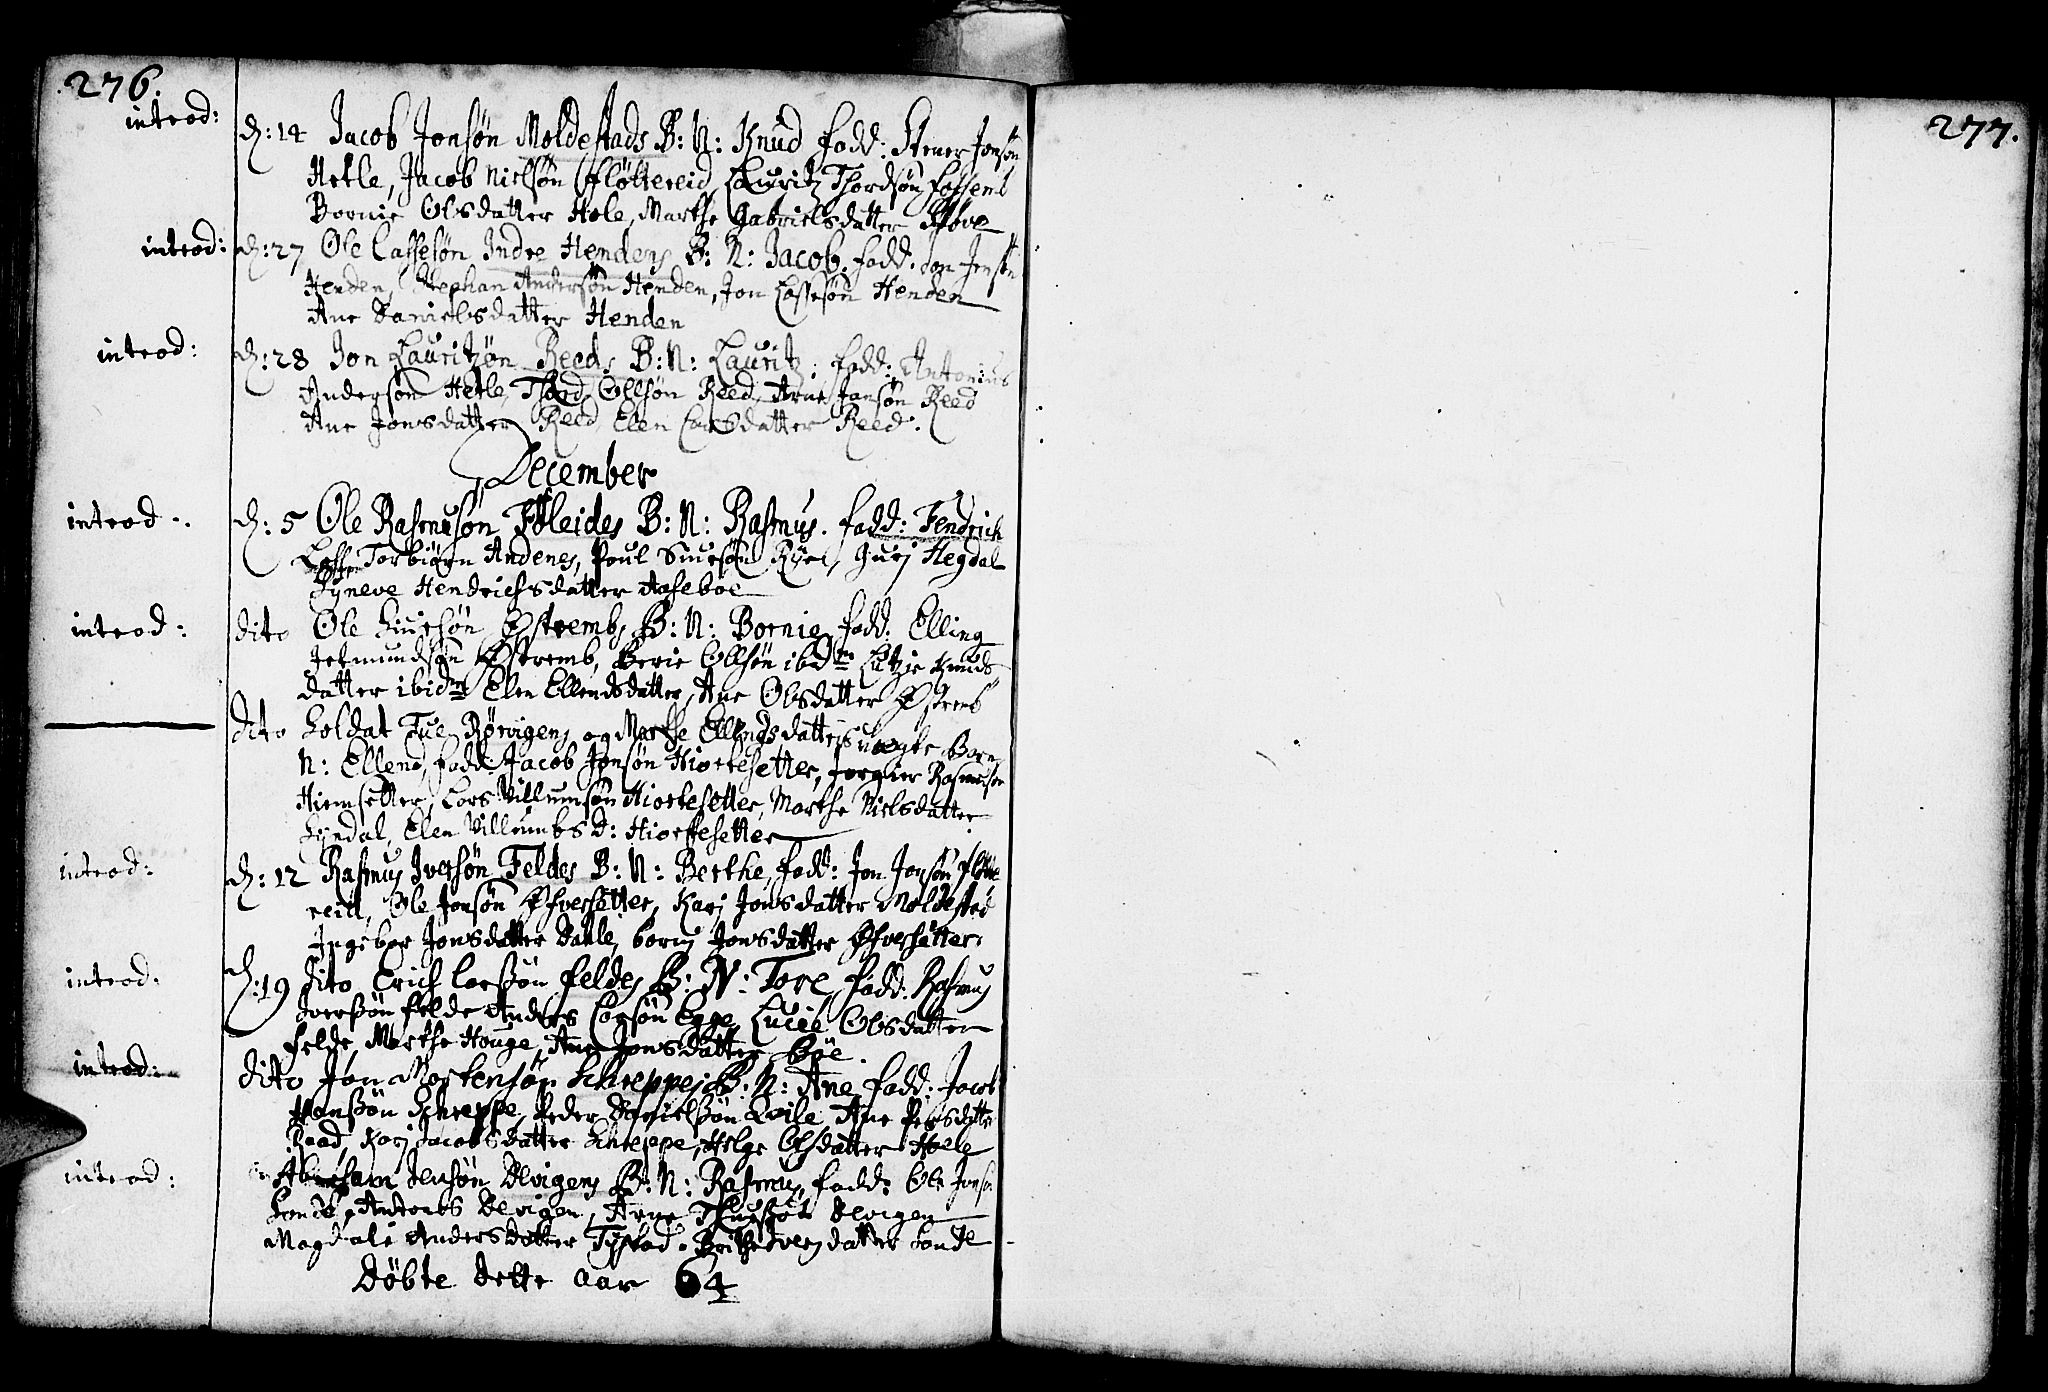 276.
introd:
d: 14 Jacob Jonsøn Moldestads B: N: Knud fadd: Stener Jonsøn
Hetle, Jacob Nielsøn Fløttereid, Lauritz Thordsøn Fossemb
Bornie Olsdatter Hole, Marthe Gabrielsdatter
introd:
d: 27 Ole Lassesøn Indre Hendens B: N: Jacob. fadd. Jon Jensøn
Henden, Stephan Andersøn Henden, Jon Lassesøn Henden
Ane Danielsdatter Henden
introd:
d: 28 Jon Lauritzøn Reeds B: N: Lauritz. fadd: Antonius
Andersøn Hetle, Thord Ollsøn Reed, Arne Jansøn Reed
Ane Jonsdatter Reed Elen Larsdatter Reed.
December
introd:
d: 5 Ole Rasmusøn Fleides B: N: Rasmus. fadd: Fendrich
Lasse Torbiørn Andenes, Poul Siuersøn Rye, Gurj Hegdal
Syneve Hendrichsdatter Aaseboe
introd:
dito Ole Siursøn Østrembs B: N: Bornie fadd: Elling
Jetmundsøn Østremb, Berie Ollsøn ibdm Lutzie Knuds
datter ibidm Elen Ellendsdatter, Ane Olsdatter Østremb
dito Soldat Tue Rørvigens og Marthe Ellendsdatters uægte Barn
N: Ellend, fadd: Jacob Jonsøn Hiortesetter, Jorgier Rasmusøn
Hiemsetter, Lars Villumsøn Hiortesetter, Marthe Nielsdatter
Syndal, Elen Villumbs D: Hiortesetter
introd:
d: 12 Rasmus Iversøn Feldes B: N: Berthe, fadd: Jon Jonsøn Fløtte
reid, Ole Jonsøn Øfversetter, Karj Jonsdatter Moldestad
Ingebor Jonsdatter Dahle, Borni Jonsdatter Øfversetter
introd:
d: 19 dito Erich Larssøn Feldes B: N: Tore fadd: Rasmus
Iverssøn Felde Anders Larsøn Egge, Lucie Olsdatter
Felde, Marthe Houge, Ane Jonsdatter Bøe.
introd:
dito Jon Mortensøn Schreppes B: N: Ane fadd: Jacob
Hanssøn Schreppe, Peder Danielssøn Qvile Ane Persdatter
Raad, Karj Jacobsdatter Schreppe, Helge Olsdatter Hole
introd:
Abraham Jensøn Devigens B: N: Rasmus, fadd: Ole Jonsøn
Sande, Antonis Devigen, Arne Devigen
Magdale Andersdatter Tystad. Brithe datter Sande
Døbte dette aar 64
277.